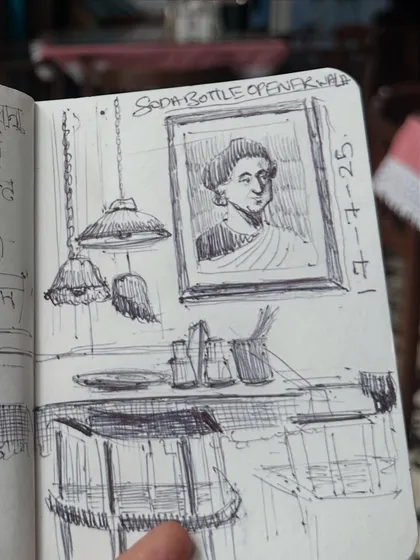 SODABOTTLEOPENERWALA
17-7-25.